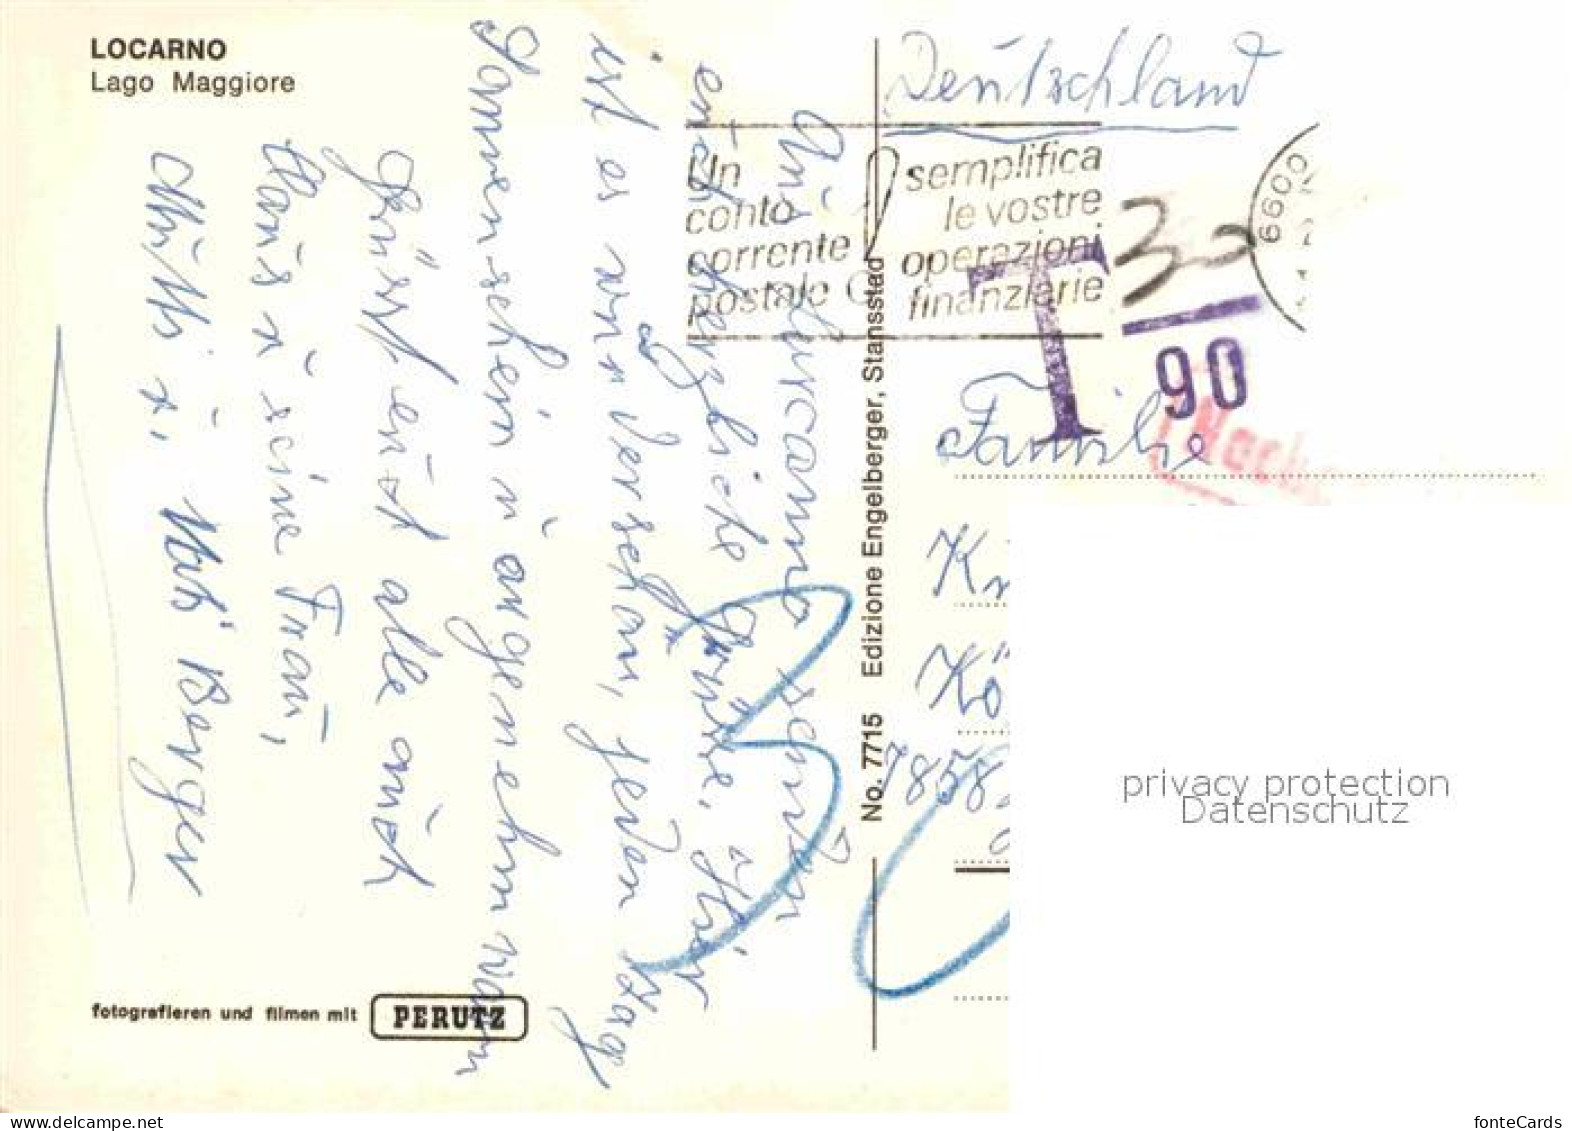 LOCARNO
Lago Maggiore
Aus Lucarno senden
euch herzliche Grüße. Hier
ist es wunderschön, jeden Tag
Sonnenschein ü angenehm warm
Grüsst euch alle auch
Haüs ü seine Fraü,
Mutti ü. Berger
fotografieren und filmen mit PERUTZ
No. 7715 Edizione Engelberger, Stansstad
Deutschland
Un
conto
corrente
postale
semplifica
le vostre
operazioni
finanziarie
6600
T 30
90
Familie
Kr
Kö
7858
30
privacy protection
Datenschutz
fonteCards